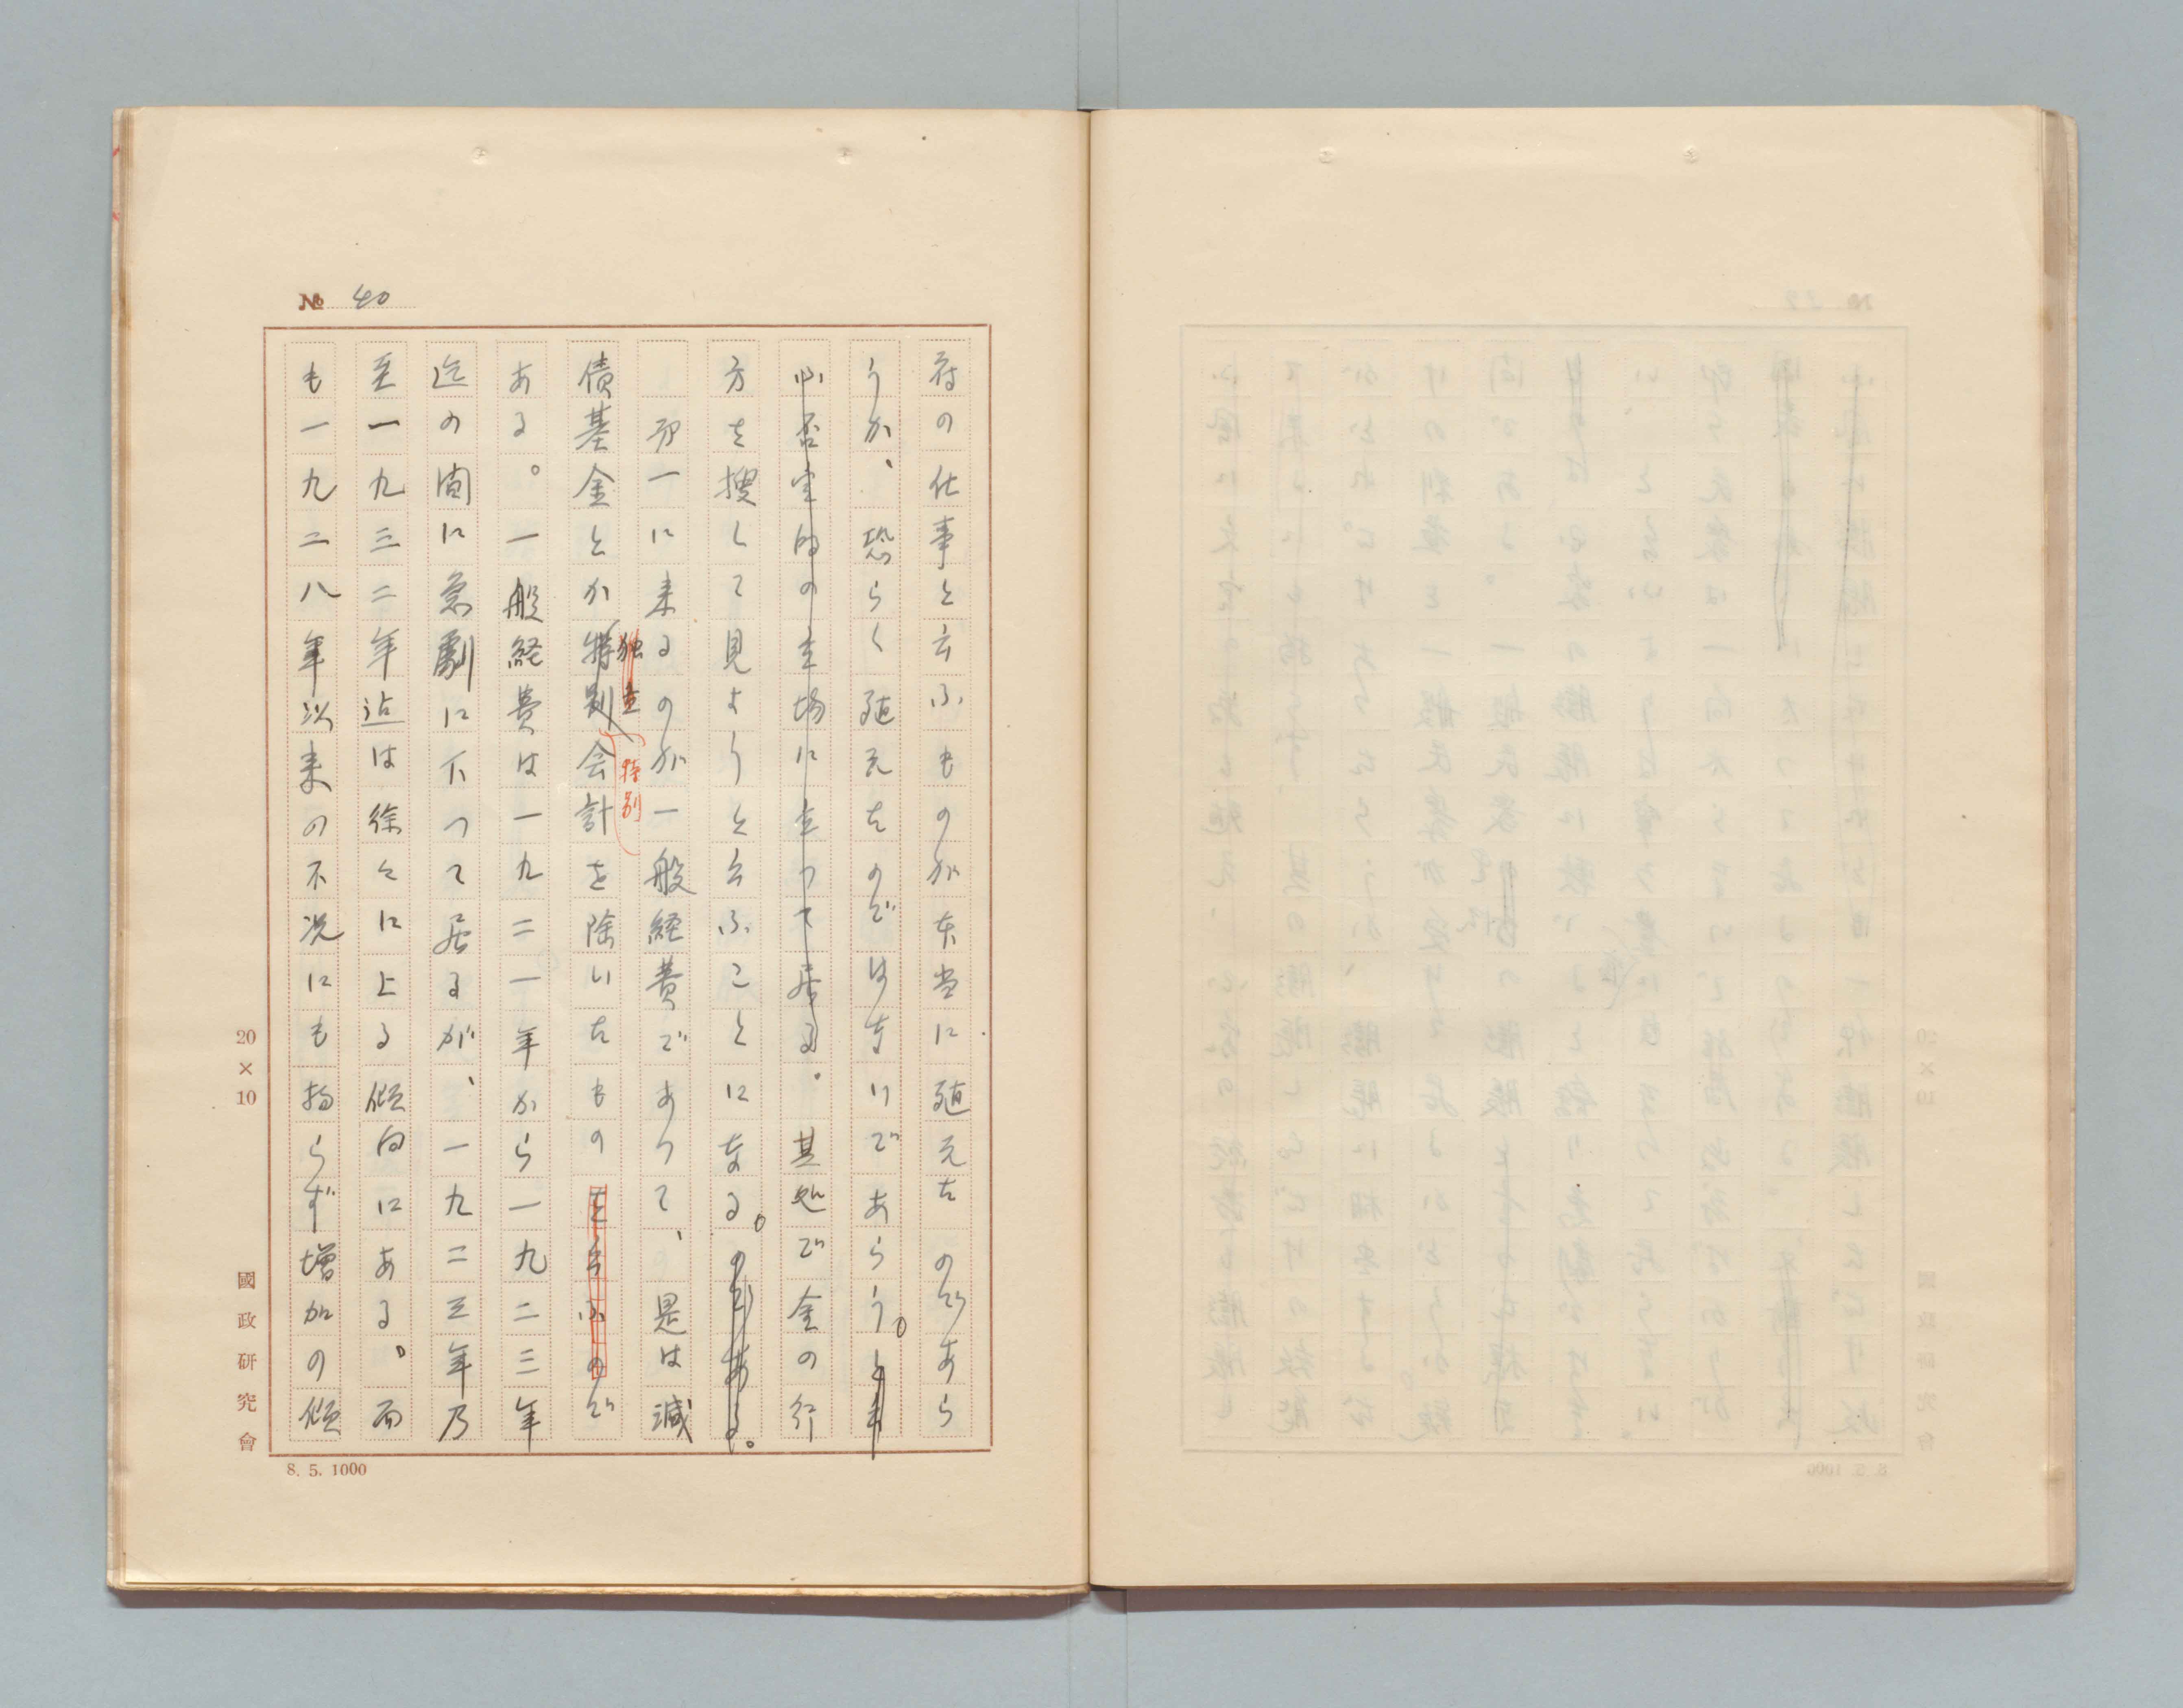 № 40
府の仕事と云ふものが本当に殖えたのであら
うか、恐らく殖えたのではないであらう。と申
ふ否定的の立場に立つて居る。其処で金の行
方を捜して見ようと云ふことになる。のである。
第一に来るのが一般経費であつて、是は減
独立
特別
債基金とか特別会計を除いたものを云ふので
ある。一般経費は一九二一年から一九二三年
迄の間に急劇に下つて居るが、一九二三年乃
至一九三二年迠は徐々に上る傾向にある。而
も一九二八年以来の不況にも拘らず増加の傾
20×10
國政研究會
8. 5. 1000